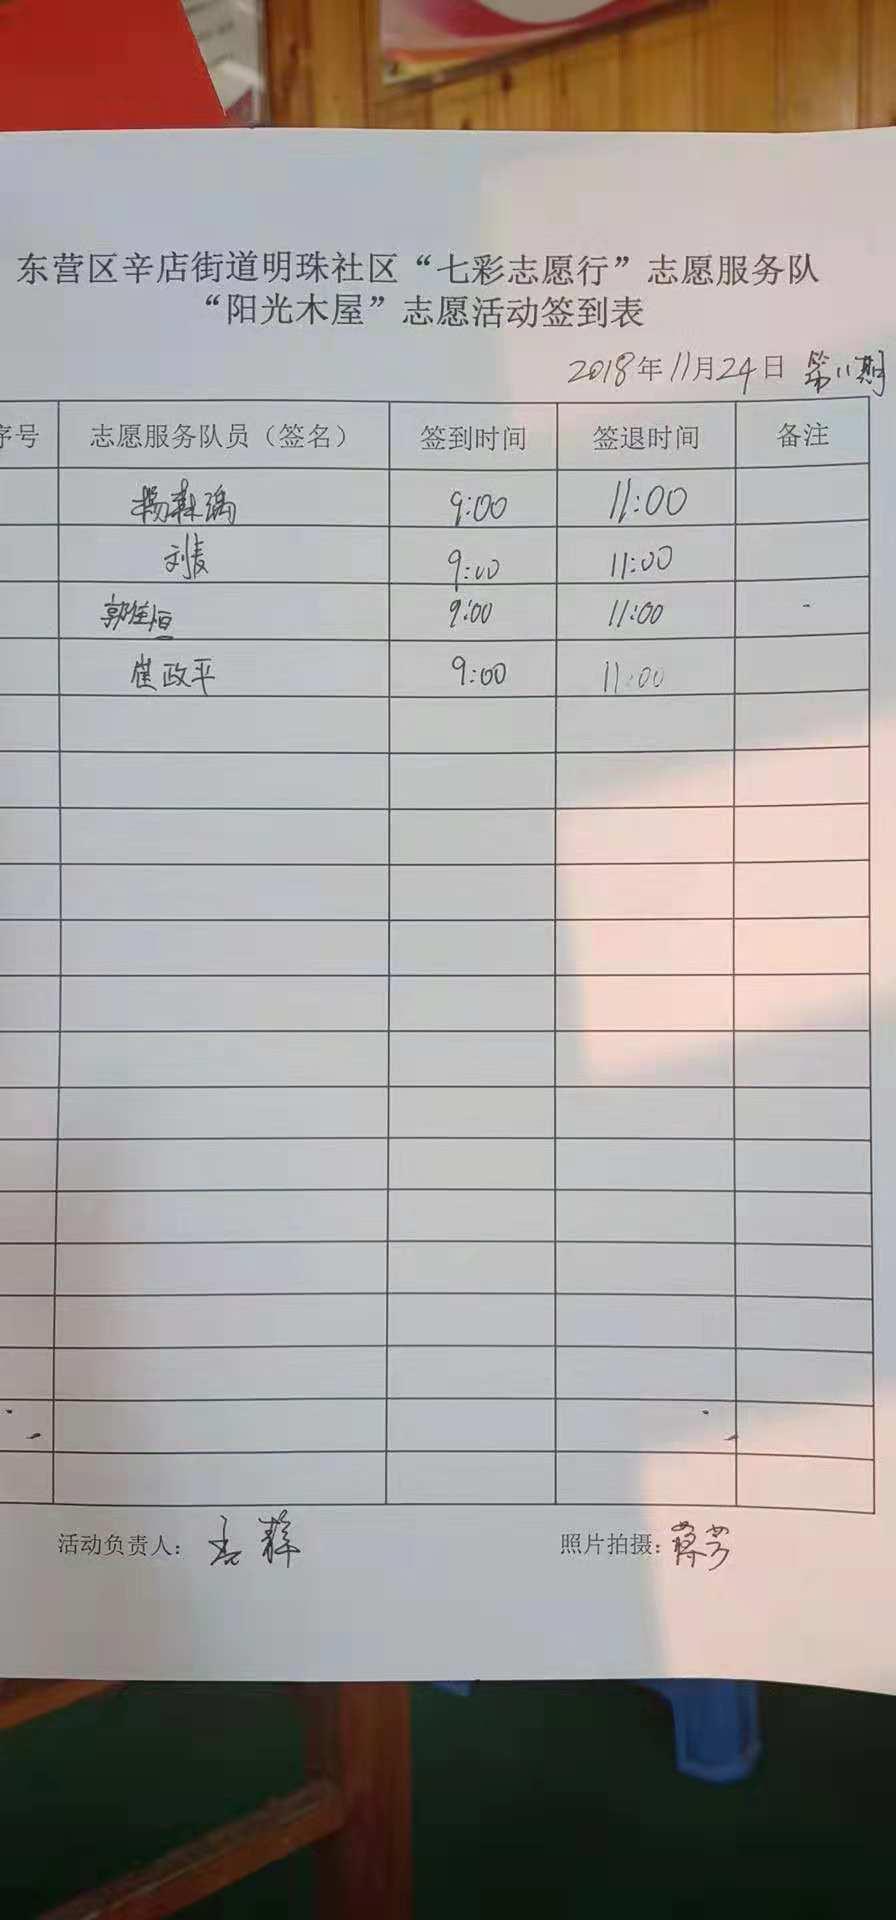 东营区辛店街道明珠社区“七彩志愿行”志愿服务队
“阳光木屋”志愿活动签到表
2018年11月24日 第11期
序号 志愿服务队员（签名） 签到时间 签退时间 备注
杨 9:00 11:00
刘 9:00 11:00
郭佳恒 9:00 11:00
崔政平 9:00 11:00
活动负责人： 照片拍摄：蒋芳